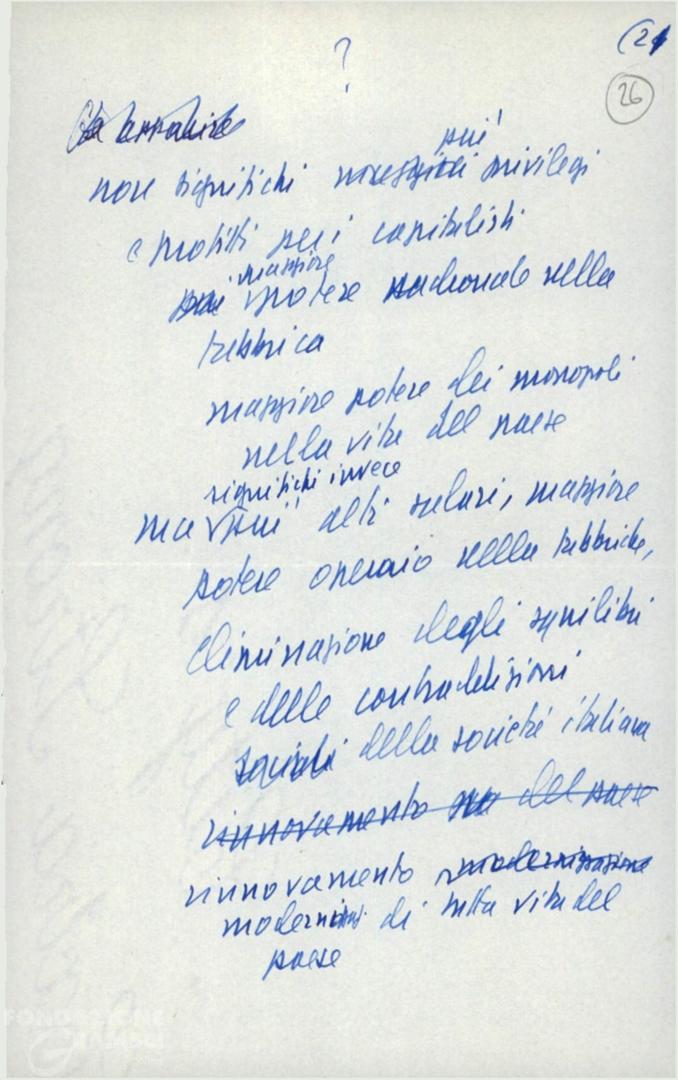 ?
(21
26
non significhi più privilegi
e profitti per i capitalisti
maggiore
potere padronale nella
fabbrica
maggiore potere dei monopoli
nella vita del paese
significhi invece
ma più alti salari, maggiore
potere operaio nella fabbriche,
eliminazione degli squilibri
e delle contraddizioni
sociali della società italiana
rinnovamento del paese
rinnovamento modernizzazione
di tutta vita del
paese
FONDAZIONE
GRAMSCI